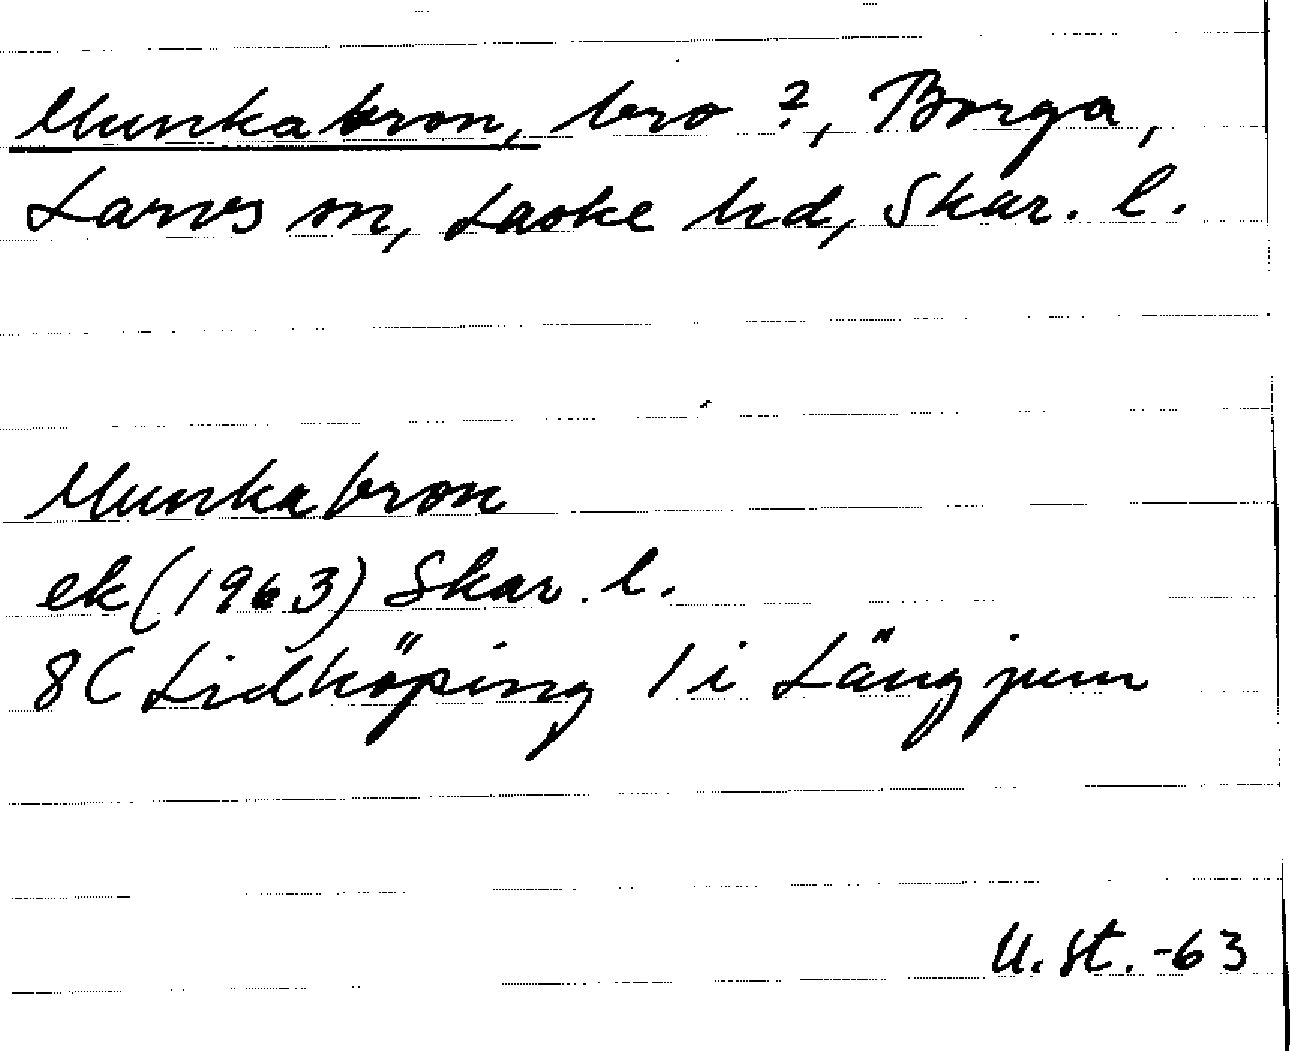 Munkabron, bro ?, Borga,
Larvs sn, Laske hd, Skar. l.
Munkabron
ek (1963) Skar. l.
8C Lidköping 1 i Längjum
U. St. -63